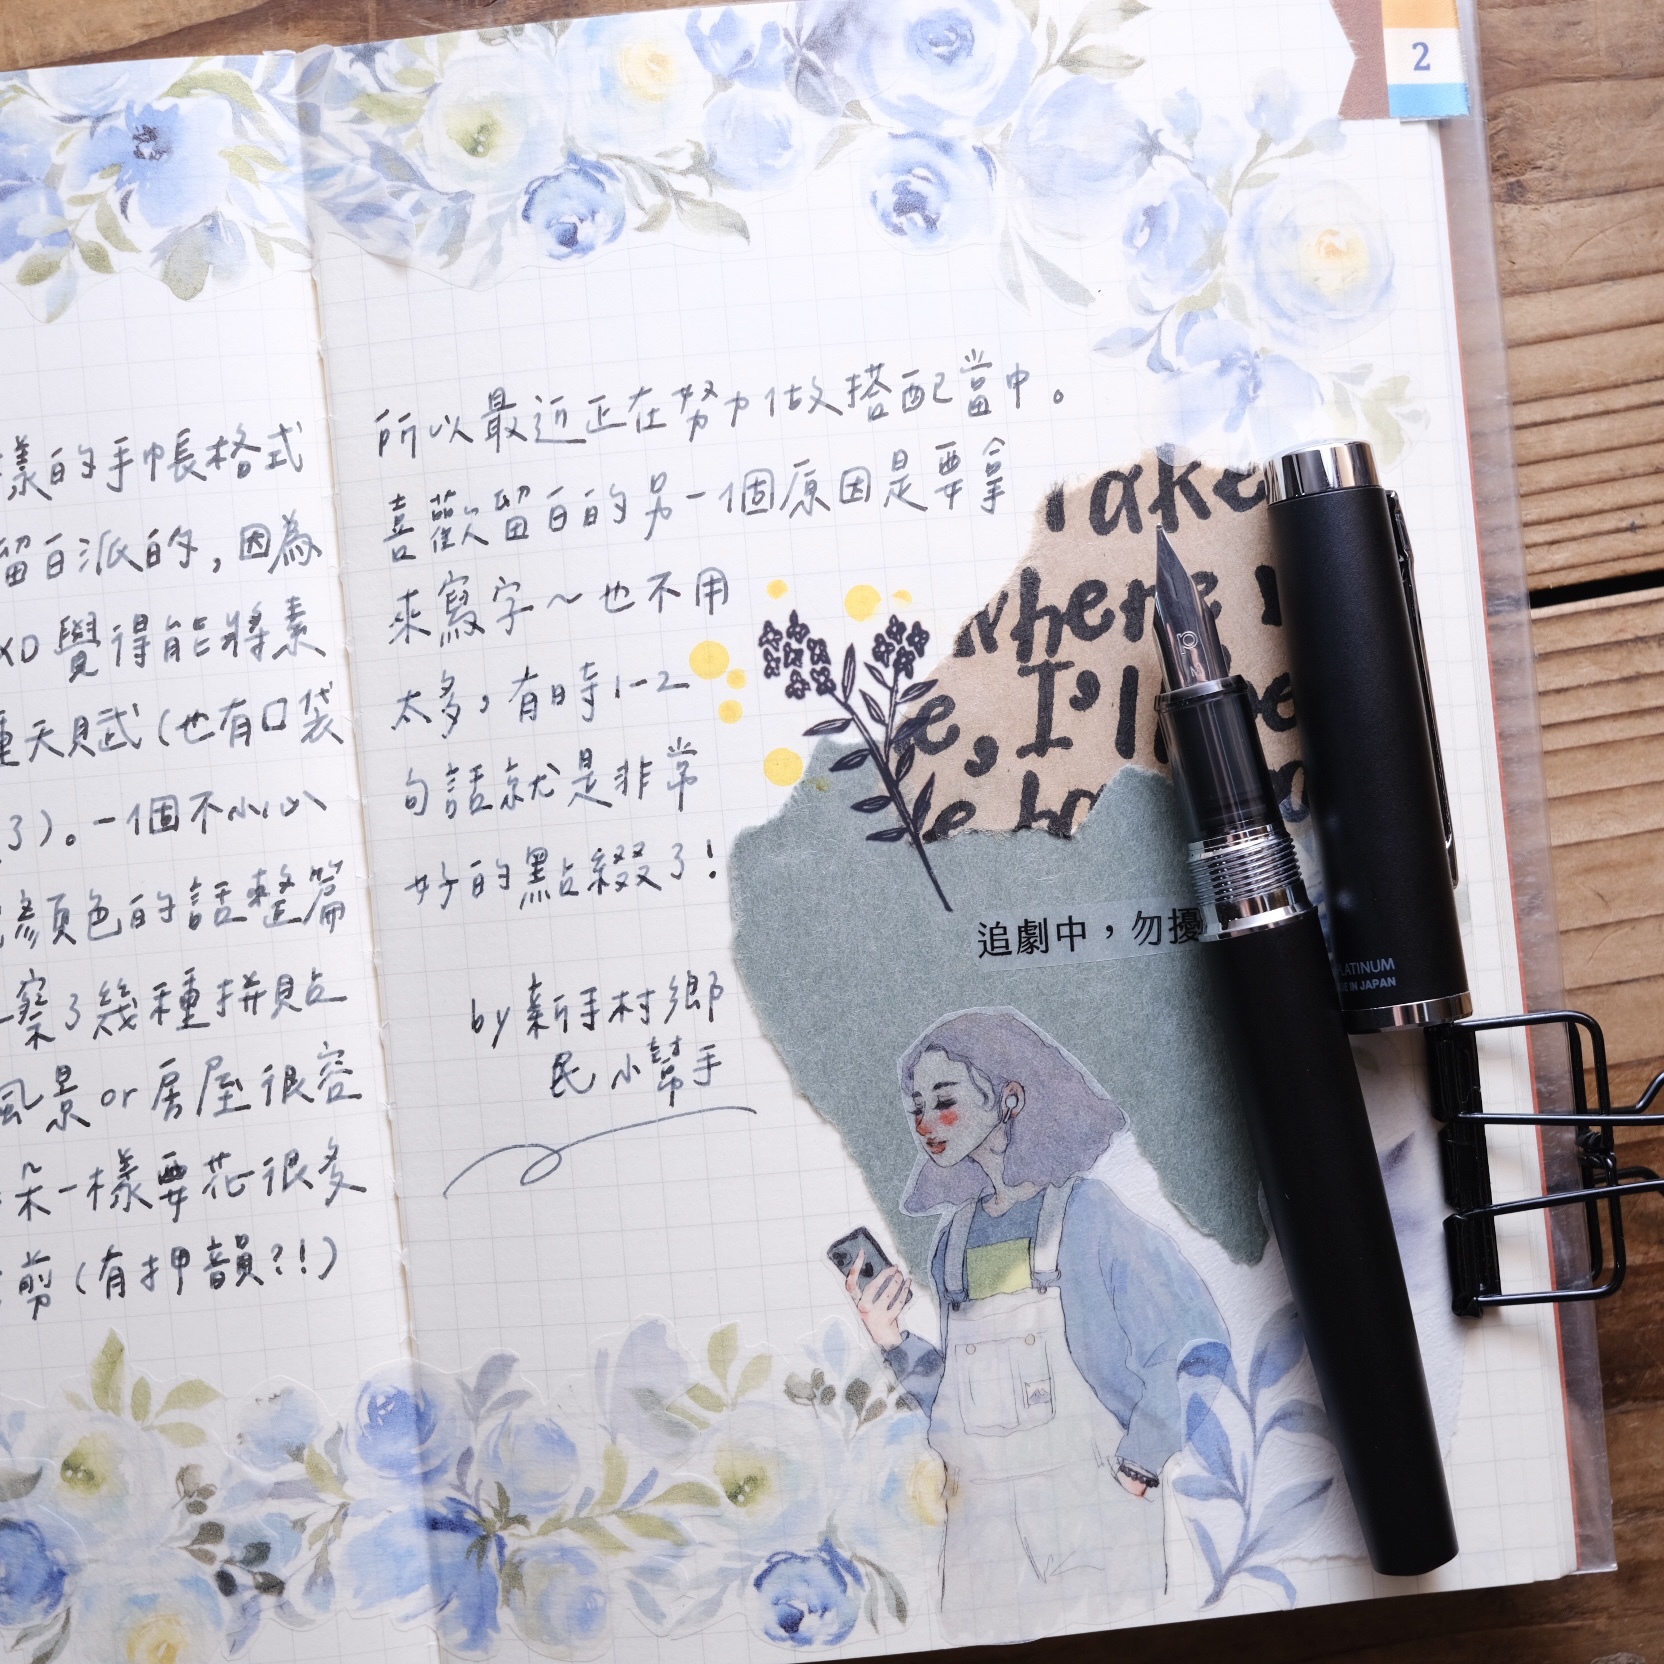 樣的手帳格式
留白派的，因為
XD 覺得能將素
種天賦（也有口袋
了）。一個不小心
顏色的話整篇
察了幾種拼貼
風景 or 房屋很容
朵一樣要花很多
剪（有押韻?!）
所以最近正在努力做搭配當中。
喜歡留白的另一個原因是要拿
來寫字～也不用
太多，有時1-2
句話就是非常
好的點綴了！
by 新手村鄉
民小幫手
2
Take
where
I'll be
追劇中，勿擾
PLATINUM
MADE IN JAPAN